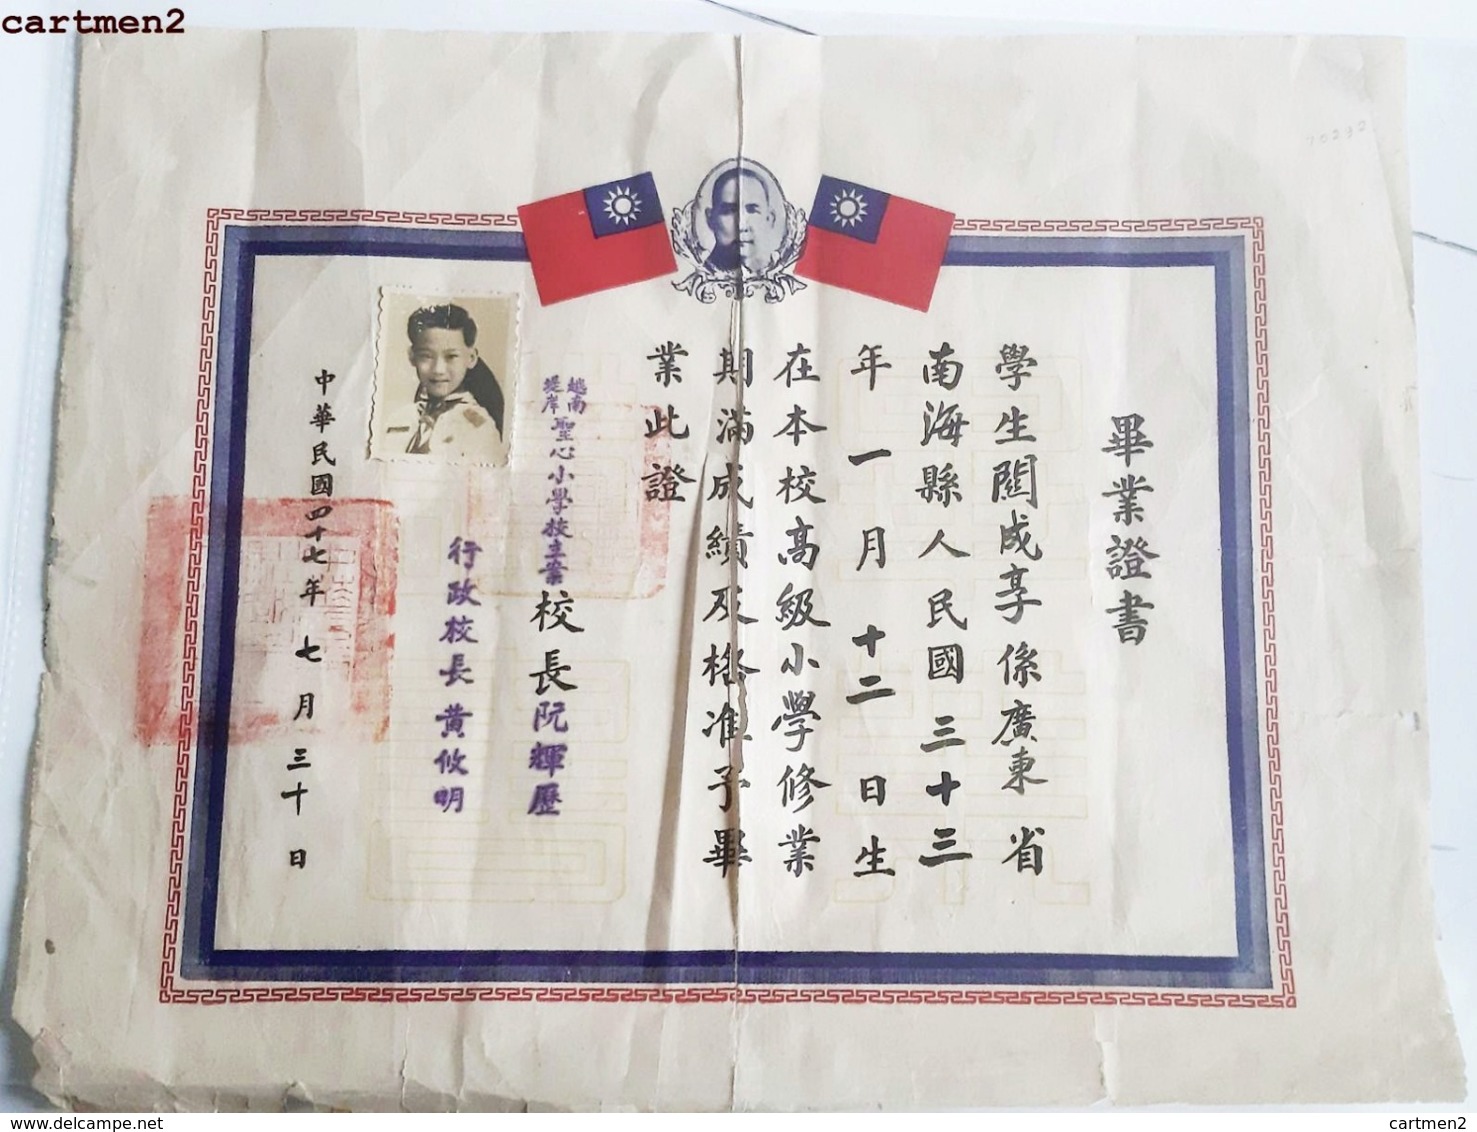 cartmen2
70292
畢業證書
學生關成享係廣東省
南海縣人民國三十三
年一月十二日生
在本校高級小學修業
期滿成績及格准予畢
業此證
越南
堤岸
聖心小學校立案校長阮輝歷
行政校長黃攸明
中華民國四十七年七月三十日
cartmen2